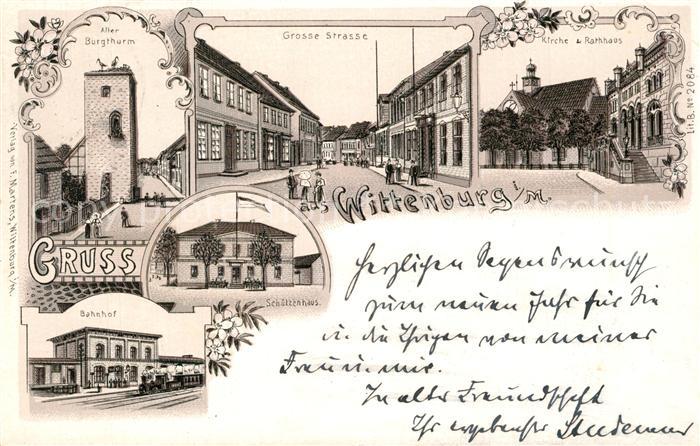 Alter
Burgthurm
Grosse Strasse
Kirche & Rathhaus
Lit. B. No 2084
Verlag von F. Martens, Wittenburg i/M.
Wittenburg i/M.
GRUSS
Schützenhaus.
Bahnhof
Herzlichen Segenswunsch
zum neuen Jahr für Sie
u die Ihrigen von meiner
Frau u mir.
In alter Freundschaft
Ihr ergebenster